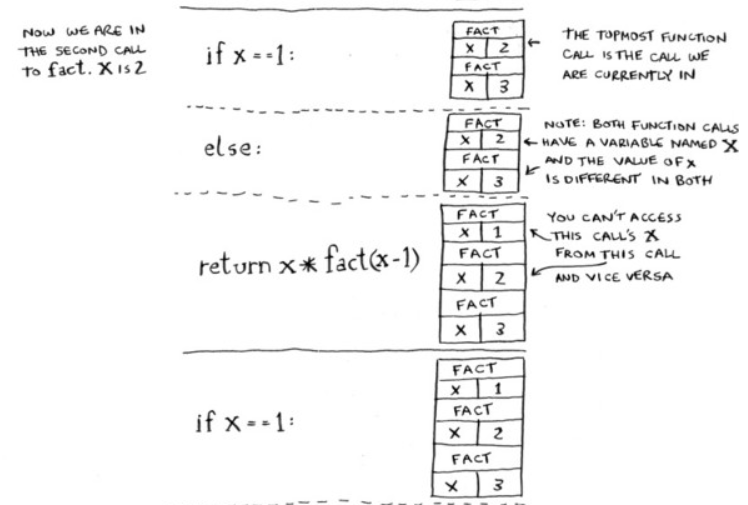 NOW WE ARE IN
THE SECOND CALL
TO fact. X IS 2
if x ==1:
FACT
X 2
FACT
X 3
THE TOPMOST FUNCTION
CALL IS THE CALL WE
ARE CURRENTLY IN
else:
FACT
X 2
FACT
X 3
NOTE: BOTH FUNCTION CALLS
HAVE A VARIABLE NAMED X
AND THE VALUE OF X
IS DIFFERENT IN BOTH
return x* fact(x-1)
FACT
X 1
FACT
X 2
FACT
X 3
YOU CAN'T ACCESS
THIS CALL'S X
FROM THIS CALL
AND VICE VERSA
if x ==1:
FACT
X 1
FACT
X 2
FACT
X 3